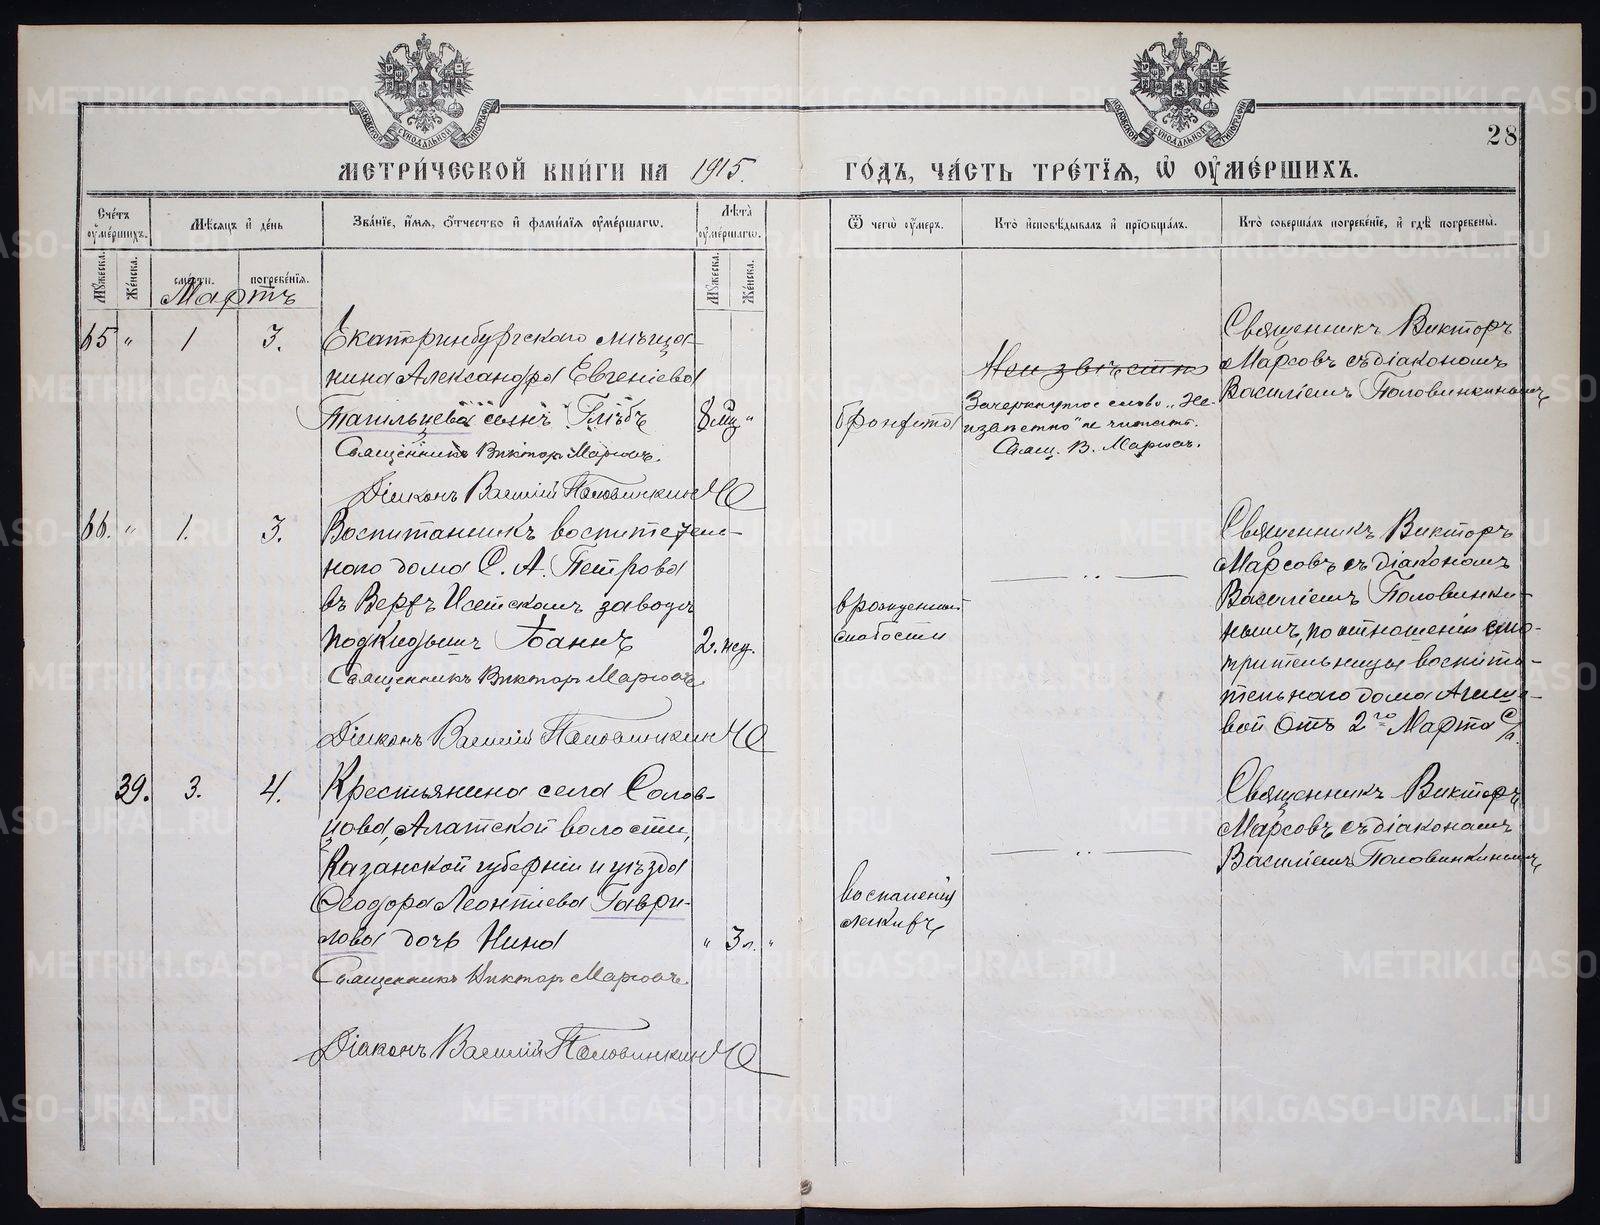 28
МЕТРИ́ЧЕСКОЙ КНИ́ГИ НА 1915. ГО́ДЪ, ЧА́СТЬ ТРЕ́ТЇѦ, Ѡ҆ ОУ҆МЕ́РШИХЪ.
Сче́тъ оу҆ме́ршихъ.
Мѣ́сѧцъ и҆ де́нь
Зва́нїе, и҆́мѧ, ѻ҆́тчество и҆ фами́лїѧ оу҆ме́ршагѡ.
Лѣ́та оу҆ме́ршагѡ.
Ѿ чегѡ̀ оу҆́меръ.
Кто̀ и҆сповѣ́дывалъ и҆ прїѡбща́лъ.
Кто̀ соверша́лъ погребе́нїе, и҆ гдѣ̀ погребены̀.
Мꙋ́жеска.
Же́нска.
сме́рти.
погребе́нїѧ.
Мꙋ́жеска.
Же́нска.
Мартъ
65 " 1 3.
Екатеринбургскаго мѣща-
нина Александра Евгеніева
Тагильцева сынъ Глѣбъ
8 мц "
Священникъ Викторъ Марсовъ.
Діаконъ Василій Половинкинъ
бронхита
Неизвѣстно
Зачеркнутое слово „Не-
извѣстно" не читать.
Свящ. В. Марсовъ.
Священникъ Викторъ
Марсовъ съ діакономъ
Василіемъ Половинкинымъ
66. " 1. 3.
Воспитанникъ воспитатель-
наго дома С. А. Петрова
въ Верхъ Исетскомъ заводѣ
подкидышъ Іоаннъ
2. нед.
Священникъ Викторъ Марсовъ
Діаконъ Василій Половинкинъ
врожденной
слабости
— " —
Священникъ Викторъ
Марсовъ съ діакономъ
Василіемъ Половинки-
нымъ, по отношенію смо-
трительницы воспита-
тельнаго дома
вой отъ 2го Марта с/г.
39. 3. 4.
Крестьянина села Солов-
цова, Алатской волости,
Казанской губерніи и уѣзда
Ѳеодора Леонтіева Гаври-
лова дочь Нина
" 3 л. "
Священникъ Викторъ Марсовъ.
Діаконъ Василій Половинкинъ
воспаленія
легкихъ
— " —
Священникъ Викторъ
Марсовъ съ діакономъ
Василіемъ Половинкинымъ
METRIKI.GASO-URAL.RU